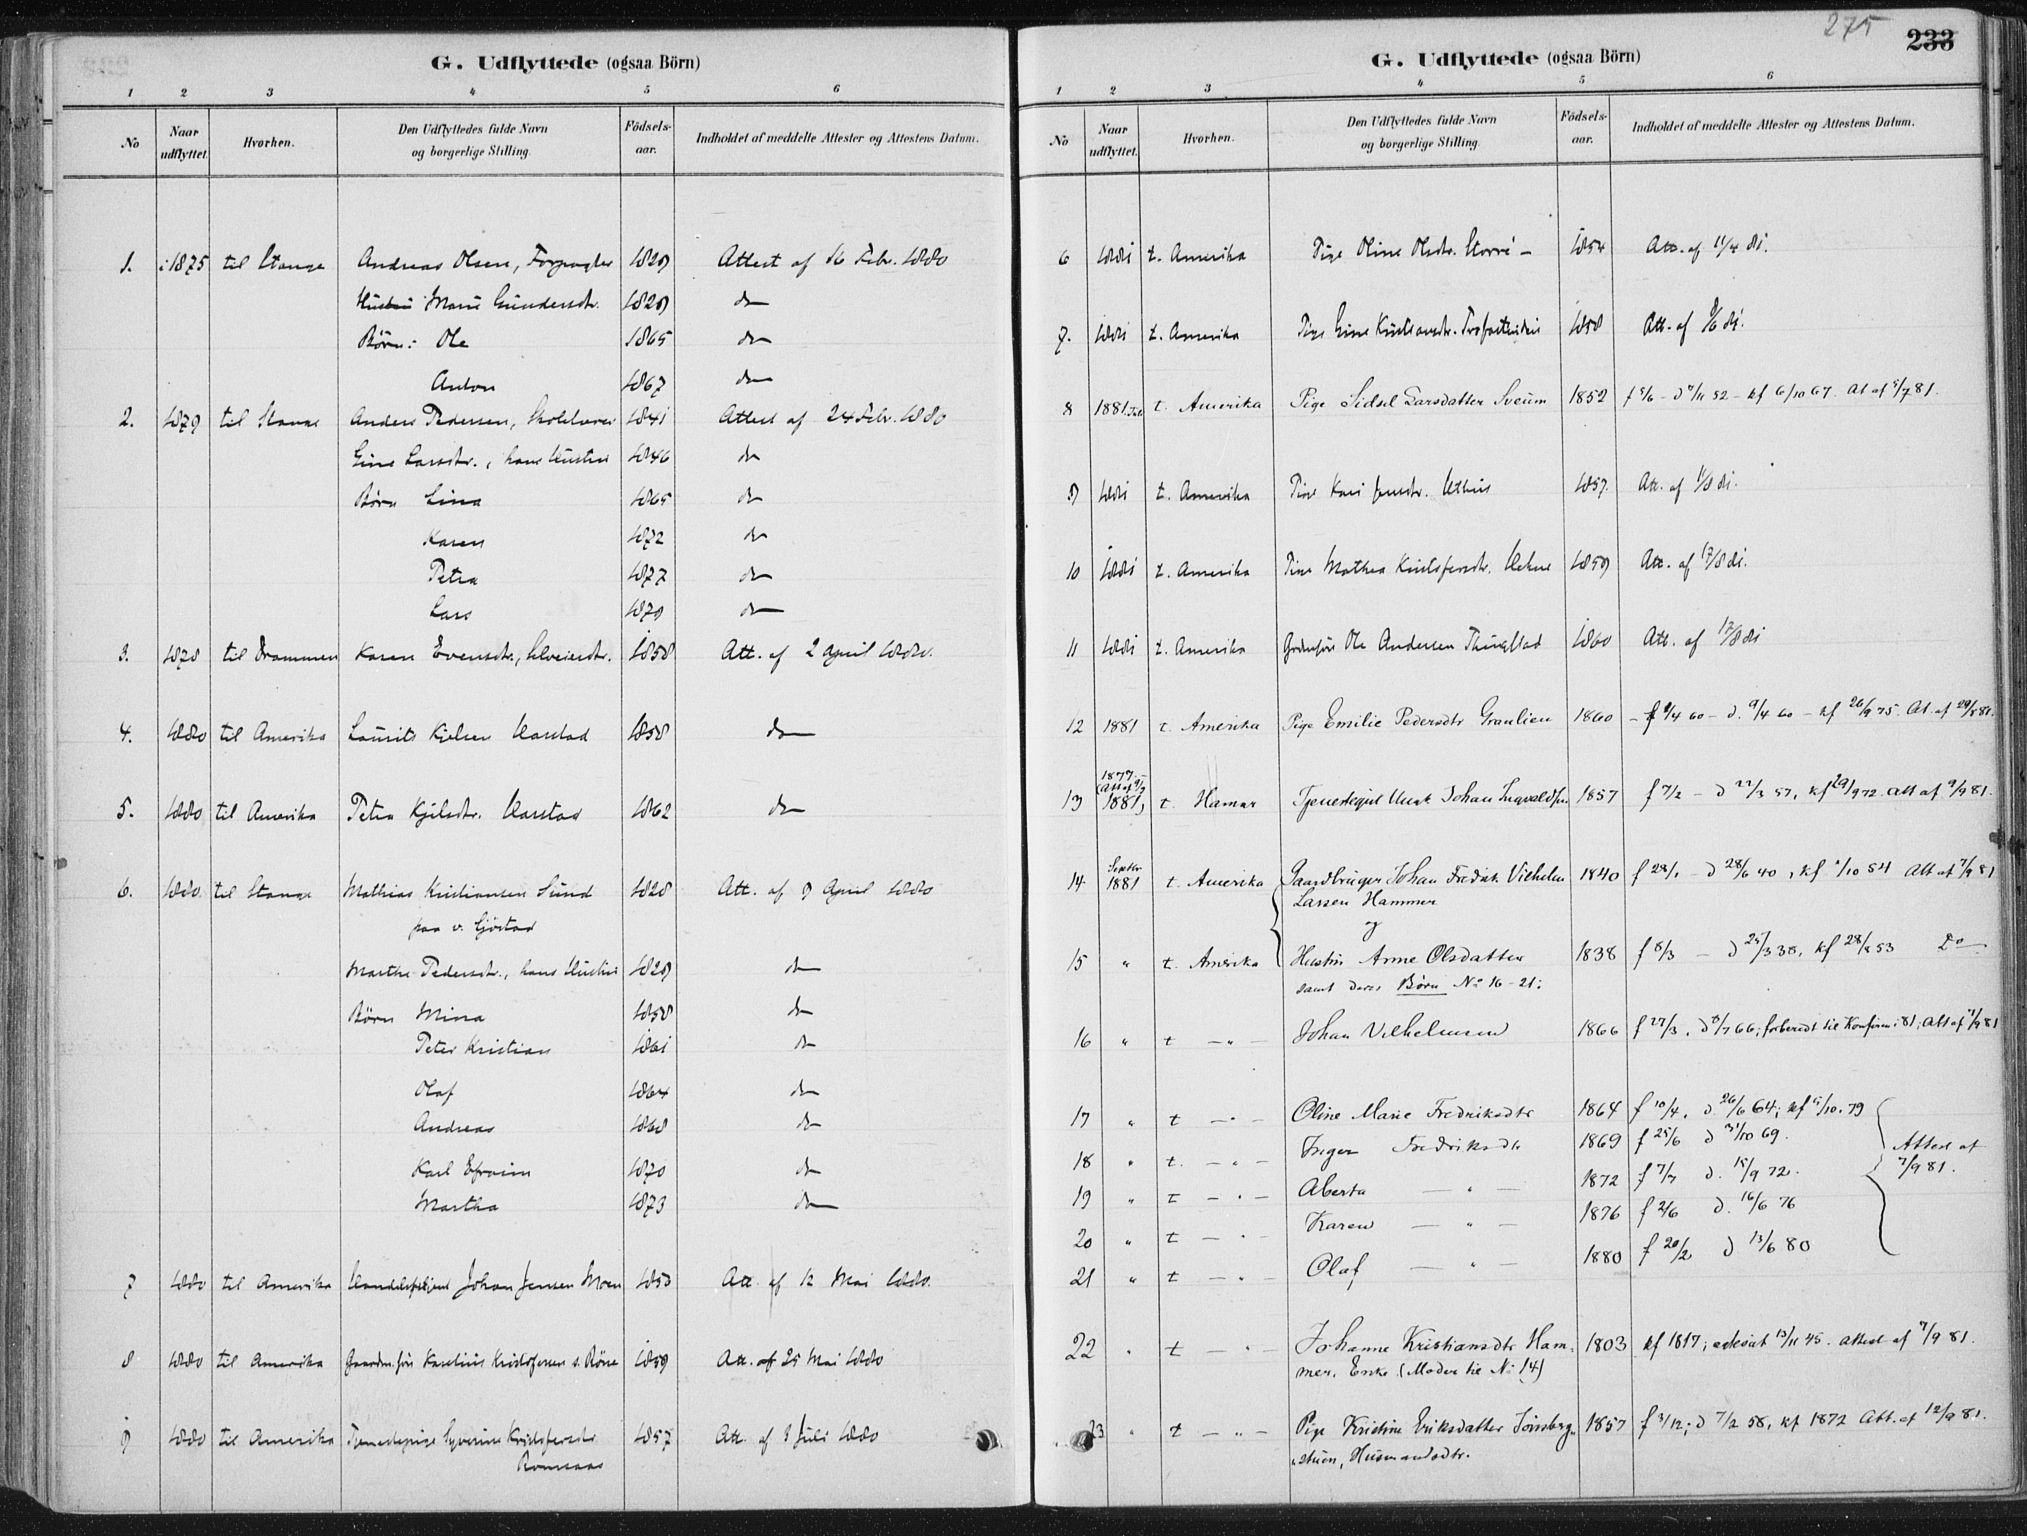 G. Udflyttede (ogsaa Börn)
1 2 3 4 5 6
No Naar udflyttet. Hvorhen. Den Udflyttedes fulde Navn og borgerlige Stilling. Födsels-aar. Indholdet af meddelte Attester og Attestens Datum.
1. i 1875 til Stange Andreas Olsen, Forpagter 1829 Attest af 16 Febr. 1880
Hustru Marie Gundersdtr. 1829 do
Börn: Ole 1865 do
Anton 1867 do
2. 1879 til Stange Anders Pedersen, Skolelærer 1841 Attest af 24 Febr. 1880
Gine Larsdtr., hans Hustru 1846 do
Börn Lina 1865 do
Karen 1872 do
Petra 1877 do
Lars 1879 do
3. 1878 til Drammen Karen Evensdtr., 1858 Att. af 2 April 1880.
4. 1880 til Amerika Laurits Kjelsen Harstad 1858 do
5. 1880 til Amerika Petra Kjelsdtr. Harstad 1862 do
6. 1880 til Stange Mathias Kristiansen Sund 1828 Att. af 9 April 1880
paa v. Gjöstad
Marthe Pedersdtr., hans Hustru 1829 do
Börn Mina 1858 do
Peter Kristian 1861 do
Olaf 1864 do
Andreas 1868 do
Karl Efraim 1870 do
Martha 1873 do
7 1880 til Amerika Johan Jensen Moen 1853 Att. af 12 Mai 1880.
8 1880 til Amerika Karelius Kristofersen 1859 Att. af 25 Mai 1880
9 1880 til Amerika Tjenestepige Syverine Kristofersdtr. 1857 Att. af 8 Juli 1880
275
233
G. Udflyttede (ogsaa Börn)
1 2 3 4 5 6
No Naar udflyttet. Hvorhen. Den Udflyttedes fulde Navn og borgerlige Stilling. Födsels-aar. Indholdet af meddelte Attester og Attestens Datum.
6 1881 t. Amerika Pige Oline Olsdtr. 1854 Att. af 11/4 81.
7. 1881 t. Amerika Pige Gine Kristiansdtr. 1858 Att. af 9/6 81.
8 1881 t. Amerika Pige Sidsel Larsdatter Sveum 1852 f 5/6 - d 7/11 52 - kf 6/10 67. At af 5/7 81.
9 1881 t. Amerika Pige Kari Jensdtr. 1857. Att. af 11/8 81.
10 1881 t. Amerika Pige Mathea Kristofersdtr. 1859 Att. af 17/8 81.
11 1881 t. Amerika Ole Andersen Thingstad 1860 Att. af 17/8 81
12 1881 t. Amerika Pige Emilie Pedersdtr Graulien 1860 - d. 9/4 60 - kf 26/9 75. At. af 29/8 81.
1877.-
13 1881, t. Hamar Johan Ingvaldsen 1857 f 7/2 - d 22/3 57, kf 29/9 72. Att af 9/9 81.
Septbr
14 1881 t. Amerika Gaardbruger Johan Fredrik Vilhelm 1840 f 28/1 - d 28/6 40, kf 1/10 54 Att af 7/9 81
Larsen Hammer
og
15 " t. Amerika Hustru Anne Olsdatter 1838 f 8/3 - d 25/3 38, kf 28/8 53 Do
samt deres Börn No 16-21:
16 " t - " - Johan Vilhelmsen 1866 f 27/3. d 8/7 66; forberedt til Konfirm: 81, Att af 7/9 81
17 " t - " - Oline Marie Fredriksdtr 1864 f 10/4. d 26/6 64; kf 5/10. 79
18 " t. - " - Inger Fredriksdtr 1869 f 25/6 d 31/10 69. Attest af
19 " t - " - Aberta - " - 1872 f 7/7 d. 15/9 72. 7/9 81.
20 " t - " - Karen - " - 1876 f 2/6 d. 16/6 76
21 " t - " - Olaf - " - 1880 f 20/2 d 13/6 80
22 " t - " - Johanne Kristiansdtr Ham- 1803 kf 1817; 13/11 45. attest af 7/9 81.
mer, Enke (Moder til No 14)
23 " t - " - Pige Kristine Eriksdatter Jönsberg- 1857 f 3/12; d 7/2 58, kf 1872 Att. af 12/9 81.
stuen, Husmandsdtr.